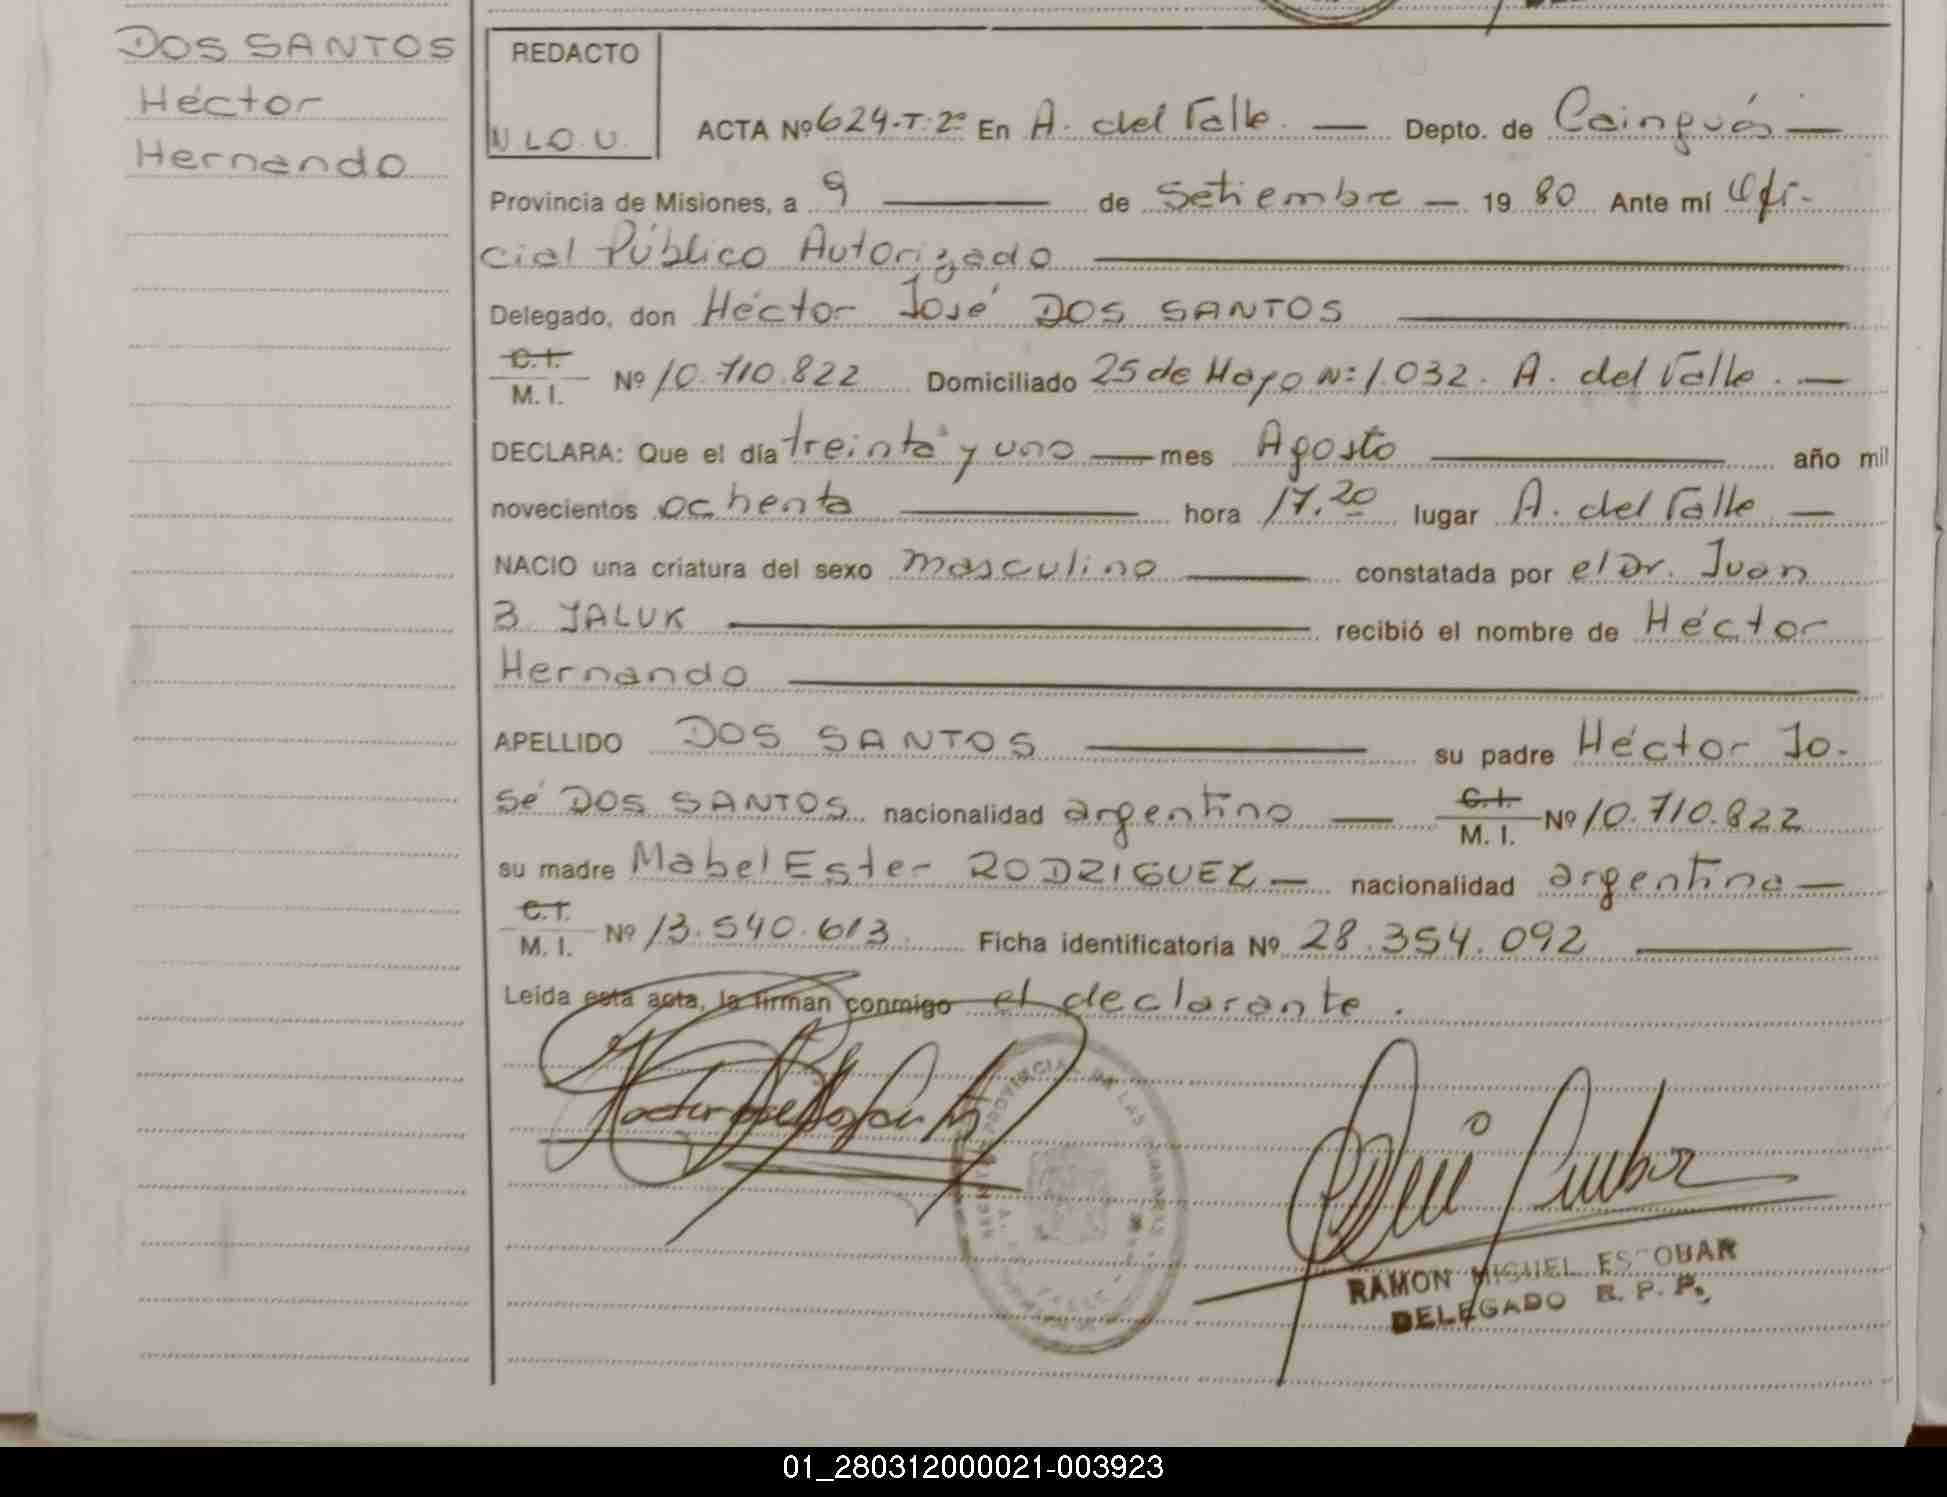 DOS SANTOS
Héctor
Hernando
REDACTO
N.L.O.U.
ACTA Nº 624-T. 2º En A. del Valle. — Depto. de Cainguás —
Provincia de Misiones, a 9 — de Setiembre — 19 80 Ante mí Ofi-
cial Público Autorizado —
Delegado, don Héctor José DOS SANTOS —
C.I.
M. I. Nº 10.710.822 Domiciliado 25 de Mayo Nº 1.032. A. del Valle. —
DECLARA: Que el día treinta y uno — mes Agosto — año mil
novecientos ochenta — hora 17.20 lugar A. del Valle —
NACIO una criatura del sexo masculino — constatada por el Dr. Juan
B. JALUK — recibió el nombre de Héctor
Hernando —
APELLIDO DOS SANTOS — su padre Héctor Jo-
sé DOS SANTOS nacionalidad argentino — C.I. M. I. Nº 10.710.822
su madre Mabel Ester RODRIGUEZ — nacionalidad argentina —
C.I.
M. I. Nº 13.540.613 Ficha identificatoria Nº 28.354.092 —
Leída esta acta, la firman conmigo el declarante.
PROVINCIA DE LAS PERSONAS
RAMON MIGUEL ESCOBAR
DELEGADO R. P. P.
01_280312000021-003923